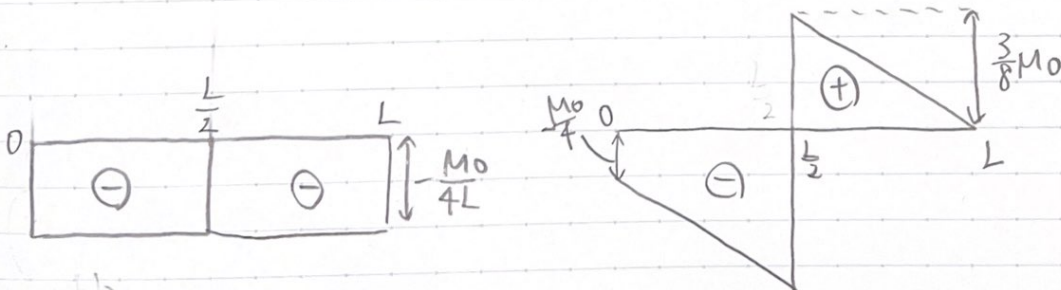 L/2
L
0
⊖
⊖
-M0/4L
M0/4
0
L/2
⊕
3/8 M0
L/2
L
⊖